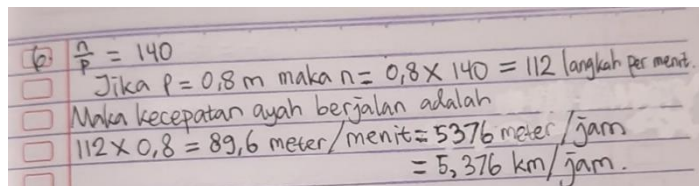 6. n/p = 140
Jika P = 0,8 m maka n = 0,8 × 140 = 112 langkah per menit.
Maka kecepatan ayah berjalan adalah
112 × 0,8 = 89,6 meter/menit = 5376 meter/jam
= 5,376 km/jam.